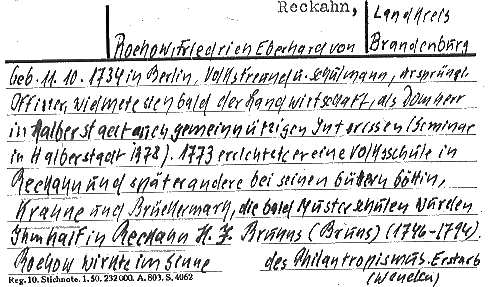 Reckahn, Landkreis
Rochow, Friedrich Eberhard von Brandenburg
Geb. 11. 10. 1734 in Berlin, Volksfreund u. Schulmann, ursprüngl.
Offizier, widmete sich bald der Landwirtschaft, als Domherr
in Halberstadt auch gemeinnützigen Interessen (Seminar
in Halberstadt 1978). 1773 errichtete er eine Volksschule in
Reckahn und später andere bei seinen Gütern Göttin,
Krahne und Brückermark, die bald Musterschulen wurden
Ihm half in Reckahn H. J. Bruns (Bruns) (1746-1794).
Rochow wirkte im Sinne des Philantropismus. Er starb
Reg. 10. Stichnote. 1. 50. 232000. A. 803. S. 4062